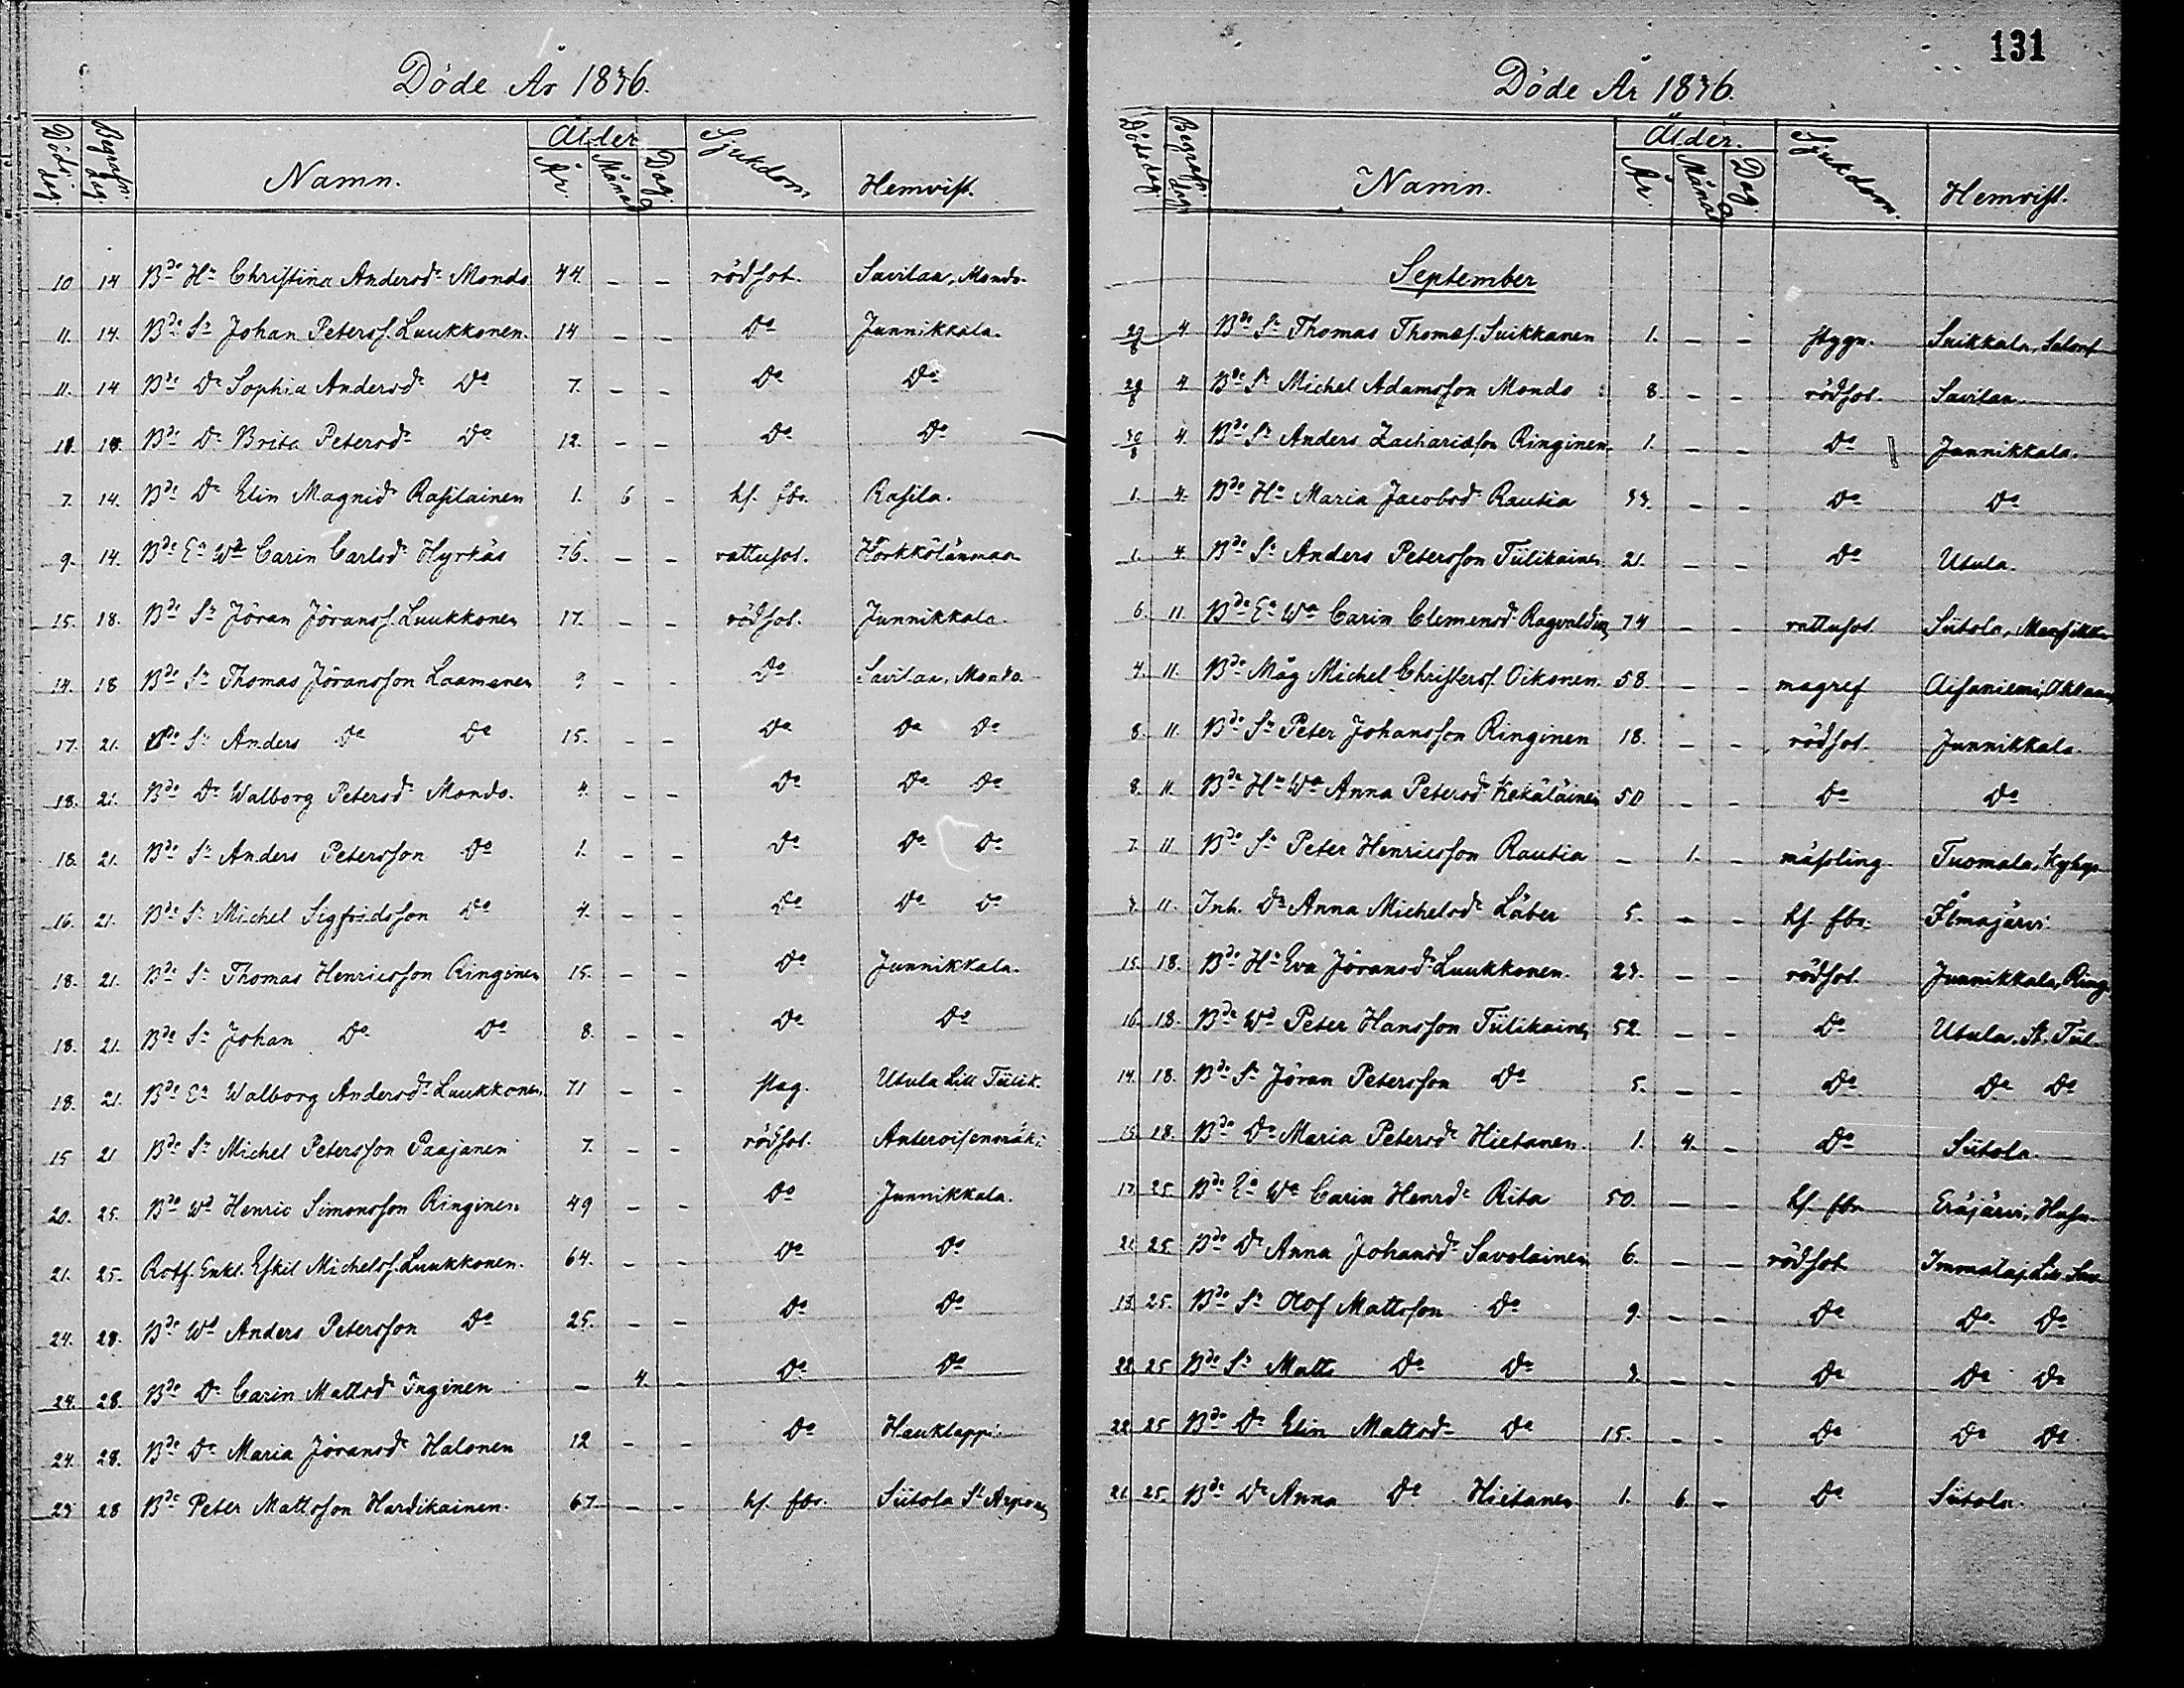 Döde År 1836.
Döds dag. Begrafn. dag. Namn. Ålder År. Månad Dag. Sjukdom Hemvist.
10 14 Bde Hu Christina Andersdr Mondo 44. – – rödsot. Savilax, Mondo.
11. 14. Bde Sn Johan Peterss. Luukkonen. 14 – – Do Junnikkala.
11. 14 Bde Dr Sophia Andersdr Do 7. – – Do Do
18. 18. Bde Dr Brita Petersdr Do 12. – – Do Do
7. 14. Bde Dr Elin Magnidr Rasilainen 1. 6 – hf. fbr. Rasila.
9. 14. Bde Ea Wa Carin Carlsdr Hyrkäs 76. – – vattusot. Hörkkölänmaa
15. 18. Bde Sn Jöran Jöranss. Luukkonen 17. – – rödsot. Junnikkala.
14. 18 Bde Sn Thomas Jöransson Laamanen 9 – – Do Savilax, Mondo
17. 21. Bde Sn Anders Do Do 15. – – Do Do Do
18. 21. Bde Dr Walborg Petersdr Mondo. 4. – – Do Do Do
18. 21. Bde Sn Anders Petersson Do 1. – – Do Do Do
16. 21. Bde Sn Michel Sigfridsson Do 4. – – Do Do Do
18. 21. Bde Sn Thomas Henricsson Ringinen 15. – – Do Junnikkala.
18. 21. Bde Sn Johan Do Do 8. – – Do Do
18. 21. Bde Ea Walborg Andersdr Luukkonen. 71 – – slag. Utula Lill Tiilik.
15 21 Bde Sn Michel Petersson Paajanen 7. – – rödsot. Anteroisenmäki
20. 25. Bde Wd Henric Simonsson Ringinen 49 – – Do Junnikkala.
21. 25. Rotf. Enkl. Eskil Michelss. Luukkonen. 64. – – Do Do
24. 28. Bde Wd Anders Petersson Do 25. – – Do Do
24. 28. Bde Dr Carin Mattsdr Inginen – 4. – Do Do
24. 28. Bde Dr Maria Jöransdr Halonen 12 – – Do Hauklappi.
25 28 Bde Peter Mattsson Hardikainen. 67. – – hf. fbr. Siitola
131
Döde År 1836.
Döds dag. Begrafn. dag. Namn. Ålder. År. Månad Dag. Sjukdom. Hemvist.
September
29/8 4. Bde Sn Thomas Thomæs. Suikkanen 1. – – stygn. Suikkala,
28/8 4. Bde Sn Michel Adamsson Mondo 8. – – rödsot. Savilax
30/8 4. Bde Sn Anders Zachariæson Ringinen. 1. – – Do Junnikkala.
1. 4. Bde Hu Maria Jacobsdr Rautia 33. – – Do Do
1. 4. Bde Sn Anders Petersson Tiilikainen 21. – – Do Utula.
6. 11. Bde Ea Wa Carin Clemensdr Ragvaldin 74 – – vattusot Siitola,
4. 11. Bde Måg Michel Christerss. Oikonen. 58. – – magref Aisaniemi,
8. 11. Bde Sn Peter Johansson Ringinen 18. – – rödsot. Junnikkala.
8. 11. Bde Hu Wa Anna Petersdr Kekäläinen 50 – – Do Do
7. 11 Bde Sn Peter Henricsson Rautia – 1. – mässling. Tuomala,
11. Inh. Dr Anna Michelsdr Läber 5. – – hf. fbr. Ilmajärvi
15. 18. Bde Hu Eva Jöransdr Luukkonen. 23. – – rödsot. Junnikkala, Ring.
16. 18. Bde Wd Peter Hansson Tiilikainen 52. – – Do Utula, St. Tiil.
14. 18. Bde Sn Jöran Petersson Do 5. – – Do Do Do
15. 18. Bde Dr Maria Petersdr Hietanen. 1. 4. – Do Siitola.
17. 25. Bde Ea Wa Carin Henrdr Rita 50. – – hf. fbr. Eräjärvi,
21. 25. Bde Dr Anna Johansdr Savolainen 6. – – rödsot. Immalaj. Lill Sav.
19. 25. Bde Sn Olof Mattsson Do 9. – – Do Do Do
22. 25 Bde Sn Matts Do Do 3. – – Do Do Do
22 25 Bde Dr Elin Mattsdr Do 15. – – Do Do Do
21. 25. Bde Dr Anna Do Hietanen 1. 6. – Do Siitola.